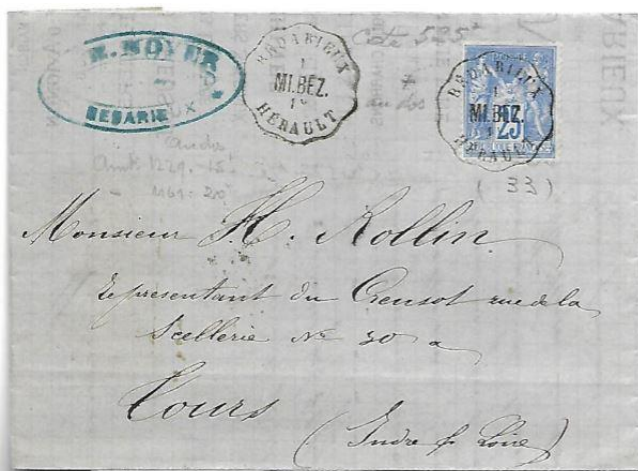 NOYER
BEDARIE
BEDARIEUX
1
MI.BEZ.
HERAULT
Cote 525
au dos
BEDARIEUX
1
MI.BEZ.
HERAULT
25
(33)
au dos
Monsieur H. Rollin
représentant du Creusot rue de la
Scellerie No 30 a
Tours
(Indre & Loire)